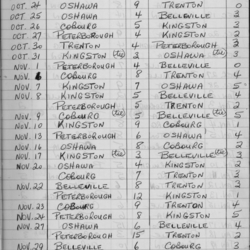 OCT. 24 OSHAWA 9 TRENTON 0
OCT 25 OSHAWA 4 BELLEVILLE 2
OCT 26 COBOURG 8 KINGSTON 2
OCT 27 PETERBOROUGH 4 KINGSTON 2
OCT. 30 TRENTON 4 PETERBOROUGH 2
OCT 30 KINGSTON (tie) 3 OSHAWA (tie) 3
NOV. 1 PETERBOROUGH 4 BELLEVILLE 0
NOV. 6 COBOURG 8 TRENTON 4
NOV 7 KINGSTON 7 OSHAWA 5
NOV 8 KINGSTON 5 BELLEVILLE 4
PETERBOROUGH 5 TRENTON 2
NOV. 9 COBOURG (tie) 5 BELLEVILLE (tie) 5
NOV. 10 KINGSTON 9 COBOURG 1
NOV 13 PETERBOROUGH 6 OSHAWA 4
NOV 16 OSHAWA 8 COBOURG 2
NOV. 17 KINGSTON (tie) 3 BELLEVILLE (tie) 3
NOV 20 OSHAWA 4 KINGSTON
COBOURG 7 TRENTON
NOV. 22 BELLEVILLE 8 TRENTON
PETERBOROUGH 12 KINGSTON
NOV. 23 COBOURG 9 TRENTON 4
NOV. 24 PETERBOROUGH 8 KINGSTON 5
NOV. 27 OSHAWA 6 BELLEVILLE
PETERBOROUGH 15 TRENTON
NOV. 29 BELLEVILLE 6 COBOURG